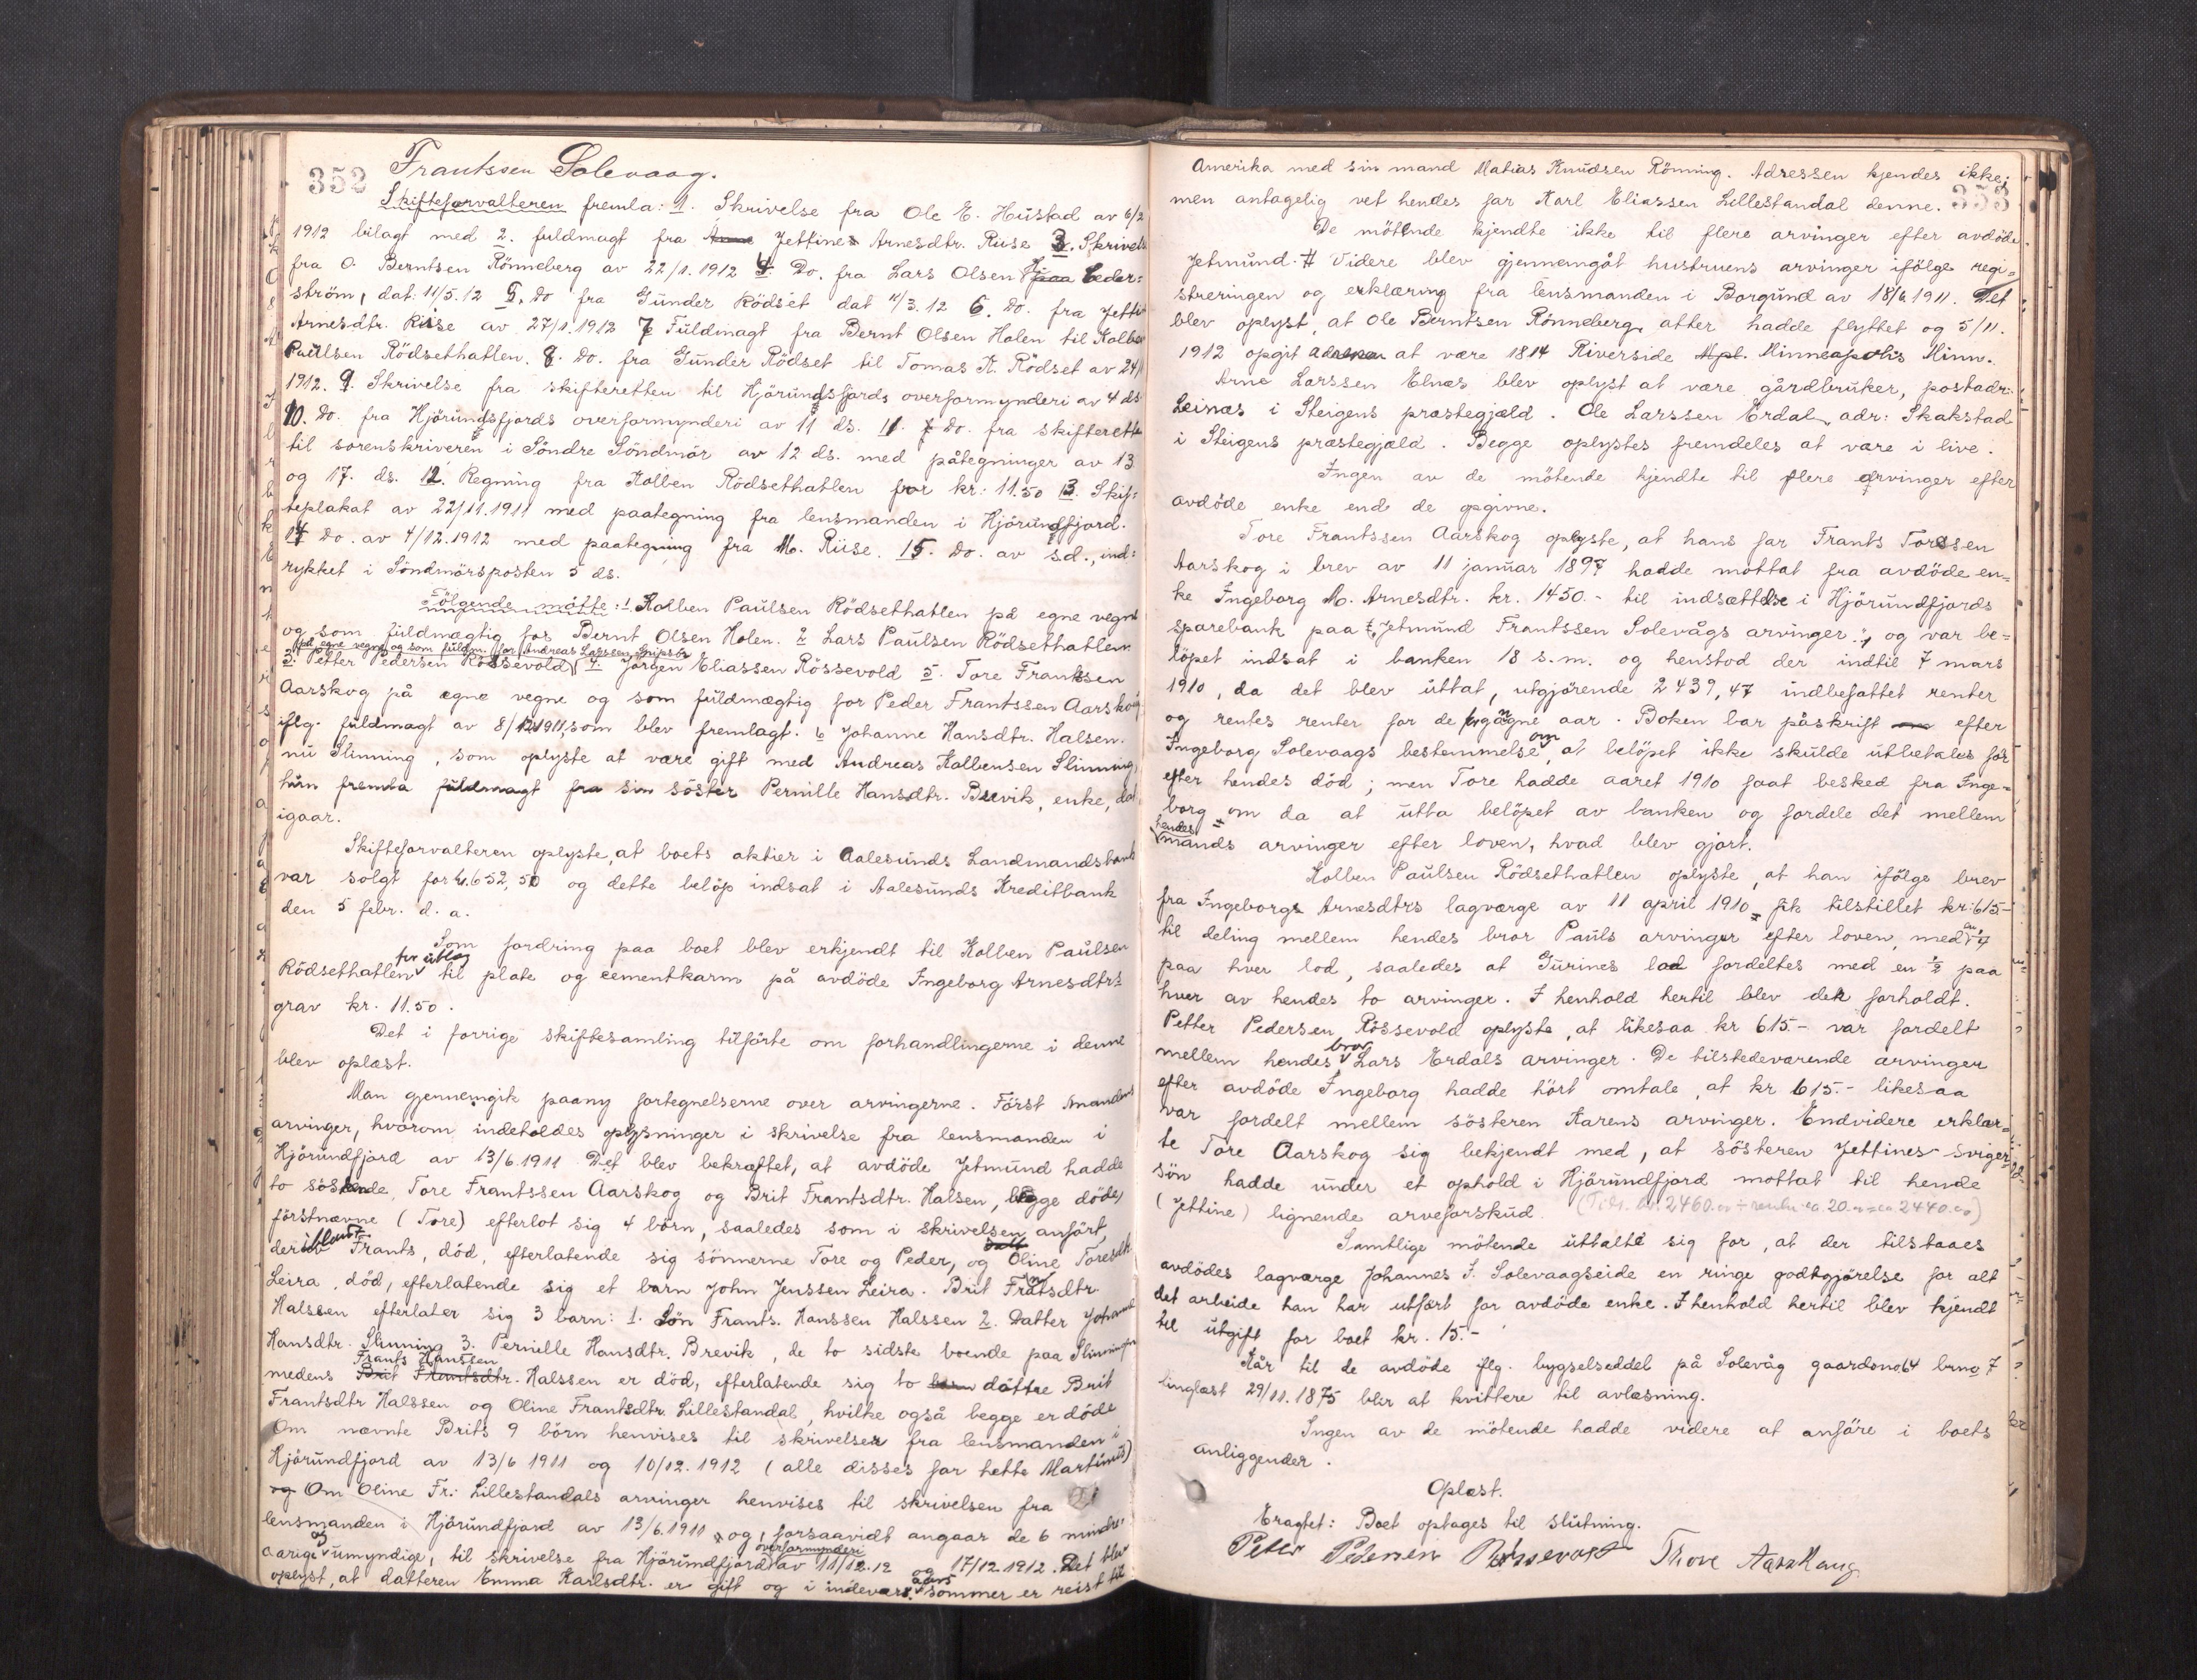 352
Frantssen Solevaag.
Skifteforvalteren fremla: 1. Skrivelse fra Ole E. Hustad av 6/2
1912 bilagt med 2. fuldmagt fra Jettine Arnesdtr. Riise 3. Skrivelse
fra O. Berntsen Rönneberg av 22/1. 1912 4. Do. fra Lars Olsen Ceder=
ström, dat: 11/5. 12 5. do fra Gunder Rödset dat 11/3. 12 6. Do. fra Jettine
Arnesdtr. Riise av 27/1. 1912 7 Fuldmagt fra Bernt Olsen Holen til Kolben
Paulsen Rödsethatlen. 8. do. fra Gunder Rödset til Tomas K. Rödset av 24/
1912. 9. Skrivelse fra skifteretten til Hjörundfjords overformynderi av 4 ds.
10. Do. fra Hjörundfjords overformynderi av 11 ds. 11. Do. fra skifteretten
til sorenskriveren i Söndre Söndmör av 12 ds. med påtegninger av 13
og 17. ds. 12. Regning fra Kolben Rödsethatlen for kr: 11.50 13. Skif=
teplakat av 22/11.1911 med paategning fra lensmanden i Hjörundfjord.
14 Do. av 4/12.1912 med paategning fra M. Riise. 15. Do. av s.d., ind=
rykket i Söndmörsposten 5 ds.
Fölgende mötte: 1. Kolben Paulsen Rödsethatlen på egne vegne
og som fuldmægtig for Bernt Olsen Holen. 2 Lars Paulsen Rödsethatlen
på egne vegne og som fuldm. for Andreas Larssen
3. Petter Pedersen Rössevold 4. Jörgen Eliassen Rössevold 5. Tore Frantssen
Aarskog på egne vegne og som fuldmægtig for Peder Frantssen Aarskog
iflg. fuldmagt av 8/12 1911, som blev fremlagt. 6 Johanne Hansdtr. Halsen.
nu Slinning, som oplyste at være gift med Andreas Kolbensen Slinning,
hun fremla fuldmagt fra sin söster Pernille Hansdtr. Brevik, enke, dat.
igaar.
Skifteforvalteren oplyste, at boets aktier i Aalesunds Landmandsbank
var solgt for kr. 652,50 og dette belöp indsat i Aalesunds Kreditbank
den 5 febr. d. a.
Som fordring paa boet blev erkjendt til Kolben Paulsen
Rödsethatlen for utlæg til plate og cementkarm på avdöde Ingeborg Arnesdtrs
grav kr. 11.50.
Det i forrige skiftesamling tilförte om forhandlingerne i denne
blev oplæst.
Man gjennemgik paany fortegnelserne over arvingerne. Först mandens
arvinger, hvorom indeholdes oplysninger i skrivelse fra lensmanden i
Hjörundfjord av 13/6.1911 Det blev bekræftet, at avdöde Jetmund hadde
to söskende, Tore Frantssen Aarskog og Brit Frantsdtr. Halsen, begge döde,
förstnævne (Tore) efterlot sig 4 börn, saaledes som i skrivelsen anfört,
deriblandt Frants, död, efterlatende sig sönnerne Tore og Peder, og Oline Toresdtr
Leira, död, efterlatende sig et barn John Jenssen Leira. Brit Frantsdtr.
Halssen efterlater sig 3 barn: 1. Sön Frants. Hanssen Halssen 2. Datter Johanne
Hansdtr. Slinning 3. Pernille Hansdtr. Brevik, de to sidste boende paa Slinningen
medens Frants Hanssen Halssen er död, efterlatende sig to döttre Brit
Frantsdtr Halssen og Oline Frantsdtr. Lillestandal, hvilke også begge er döde
Om nævnte Brits 9 börn henvises til skrivelser fra lensmanden i
Hjörundfjord av 13/6 1911 og 10/12.1912 (alle disses far hette Martinus)
Om Oline Fr: Lillestandals arvinger henvises til skrivelsen fra
lensmanden i Hjörundfjord av 13/6.1911 og, forsaavidt angaar de 6 mindre=
aarige og umyndige, til skrivelse fra Hjörundfjord overformynderi av 11/12.12 og 17/12.1912. Det blev
oplyst, at datteren Emma Karlsdtr. er gift og i indevær. aars sommer er reist til
353
Amerika med sin mand Matias Knudsen Rönning. Adressen kjendes ikke;
men antagelig vet hendes far Karl Eliassen Lillestandal denne.
De mötende kjendte ikke til flere arvinger efter avdöde
Jetmund. # Videre blev gjennemgåt hustruens arvinger ifölge regi=
streringen og erklæring fra lensmanden i Borgund av 18/6 1911. Det
blev oplyst, at Ole Berntsen Rönneberg atter hadde flyttet og 5/11.
1912 opgit adressen at være 1814 Riverside Minneapolis Minn.
Arne Larssen Elnæs blev oplyst at være gårdbruker, postadr:
Leinæs i Steigens præstegjæld. Ole Larssen Erdal, adr: Skakstad
i Steigens præstegjæld. Begge oplystes fremdeles at være i live.
Ingen av de mötende kjendte til flere arvinger efter
avdöde enke end de opgivne.
Tore Frantssen Aarskog oplyste, at hans far Frants Toressen
Aarskog i brev av 11 januar 1897 hadde mottat fra avdöde en=
ke Ingeborg M. Arnesdtr. kr. 1450.- til indsættelse i Hjörundfjords
sparebank paa "Jetmund Frantssen Solevågs arvinger", og var be=
löpet indsat i banken 18 s.m. og henstod der indtil 7 mars
1910, da det blev uttat, utgjörende 2439,47 indbefattet renter
og rentes renter for de gangne aar. Boken bar påskrift efter
Ingeborg Solevaags bestemmelse om at belöpet ikke skulde utbetales för
efter hendes död; men Tore hadde aaret 1910 faat besked fra Inge=
borg om da at utta belöpet av banken og fordele det mellem
hendes mands arvinger efter loven, hvad blev gjort.
Kolben Paulsen Rödsethatlen oplyste, at han ifölge brev
fra Ingeborgs Arnesdtrs lagværge av 11 april 1910 fik tilstillet kr: 615.-
til deling mellem hendes bror Pauls arvinger efter loven, med
paa hver lod, saaledes at Gurines lod fordeltes med en 1/2 paa
hver av hendes to arvinger. I henhold hertil blev det forholdt.
Petter Pedersen Rössevold oplyste, at likesaa kr 615.- var fordelt
mellem hendes bror Lars Erdals arvinger. De tilstedeværende arvinger
efter avdöde Ingeborg hadde hört omtale, at kr 615.- likesaa
var fordelt mellem sösteren Karens arvinger. Endvidere erklær=
te Tore Aarskog sig bekjendt med, at sösteren Jettines sviger=
sön hadde under et ophold i Hjörundfjord mottat til hende
(Jettine) lignende arveforskud.
Samtlige mötende uttalte sig for, at der tilstaaes
avdödes lagværge Johannes J. Solevaagseide en ringe godtgjörelse for alt
det arbeide han har utfört for avdöde enke. I henhold hertil blev kjendt
til utgift for boet kr. 15.-
Kår til de avdöde iflg. bygselseddel på Solevåg gaardsno 64 brno 7
tinglæst 29/11.1875 blir at kvittere til avlæsning.
Ingen av de mötende hadde videre at anföre i boets
anliggender.
Oplæst.
Eragtet: Boet optages til slutning.
Peter Pedersen Røssevold Thore Aarskaug